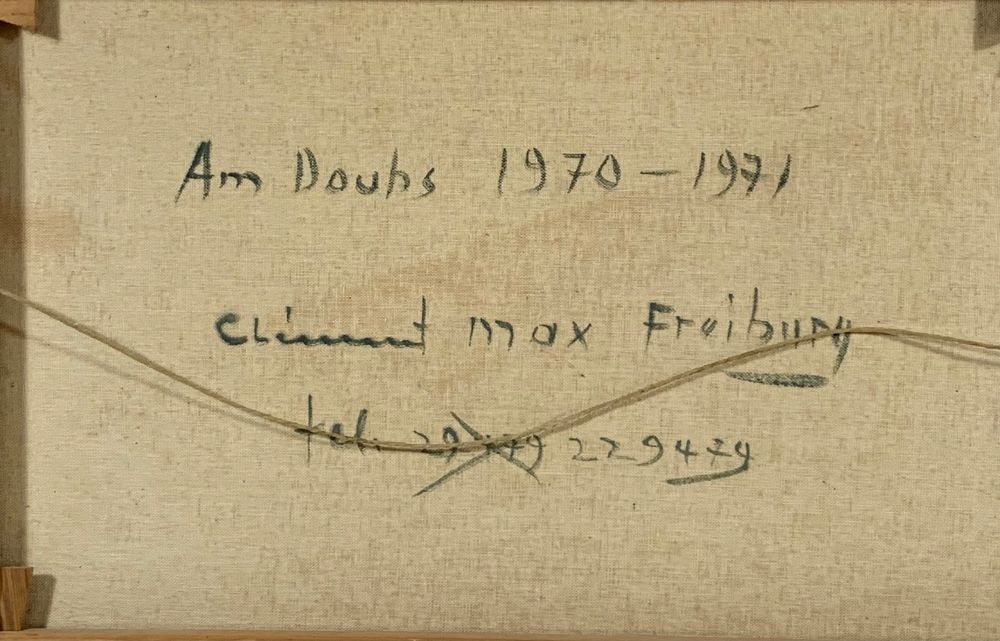 Am Doubs 1970 – 1971
Clément Max Freiburg
tel. 229479